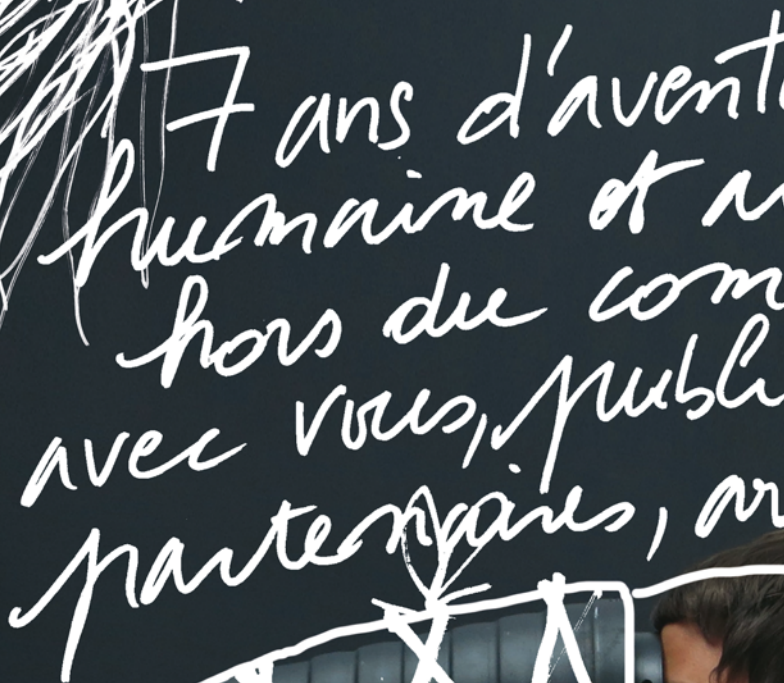 7 ans d'avent
humaine et
hors du com
avec vous, publi
partenaires, ar